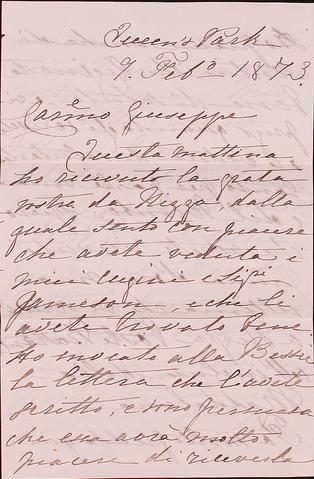 Queen's Park
9. Feb.º 1873.
Carmo Giuseppe
Questa mattina
ho ricevuto la grata
vostra da Nizza, dalla
quale sento con piacere
che avete veduta i
miei cugini e Sigri
Jameson, e che li
avete trovato bene.
Ho inviato alla Bessie
la lettera che l'avete
scritto, e sono persuasa
che essa avrà molto
piacere di riceverla